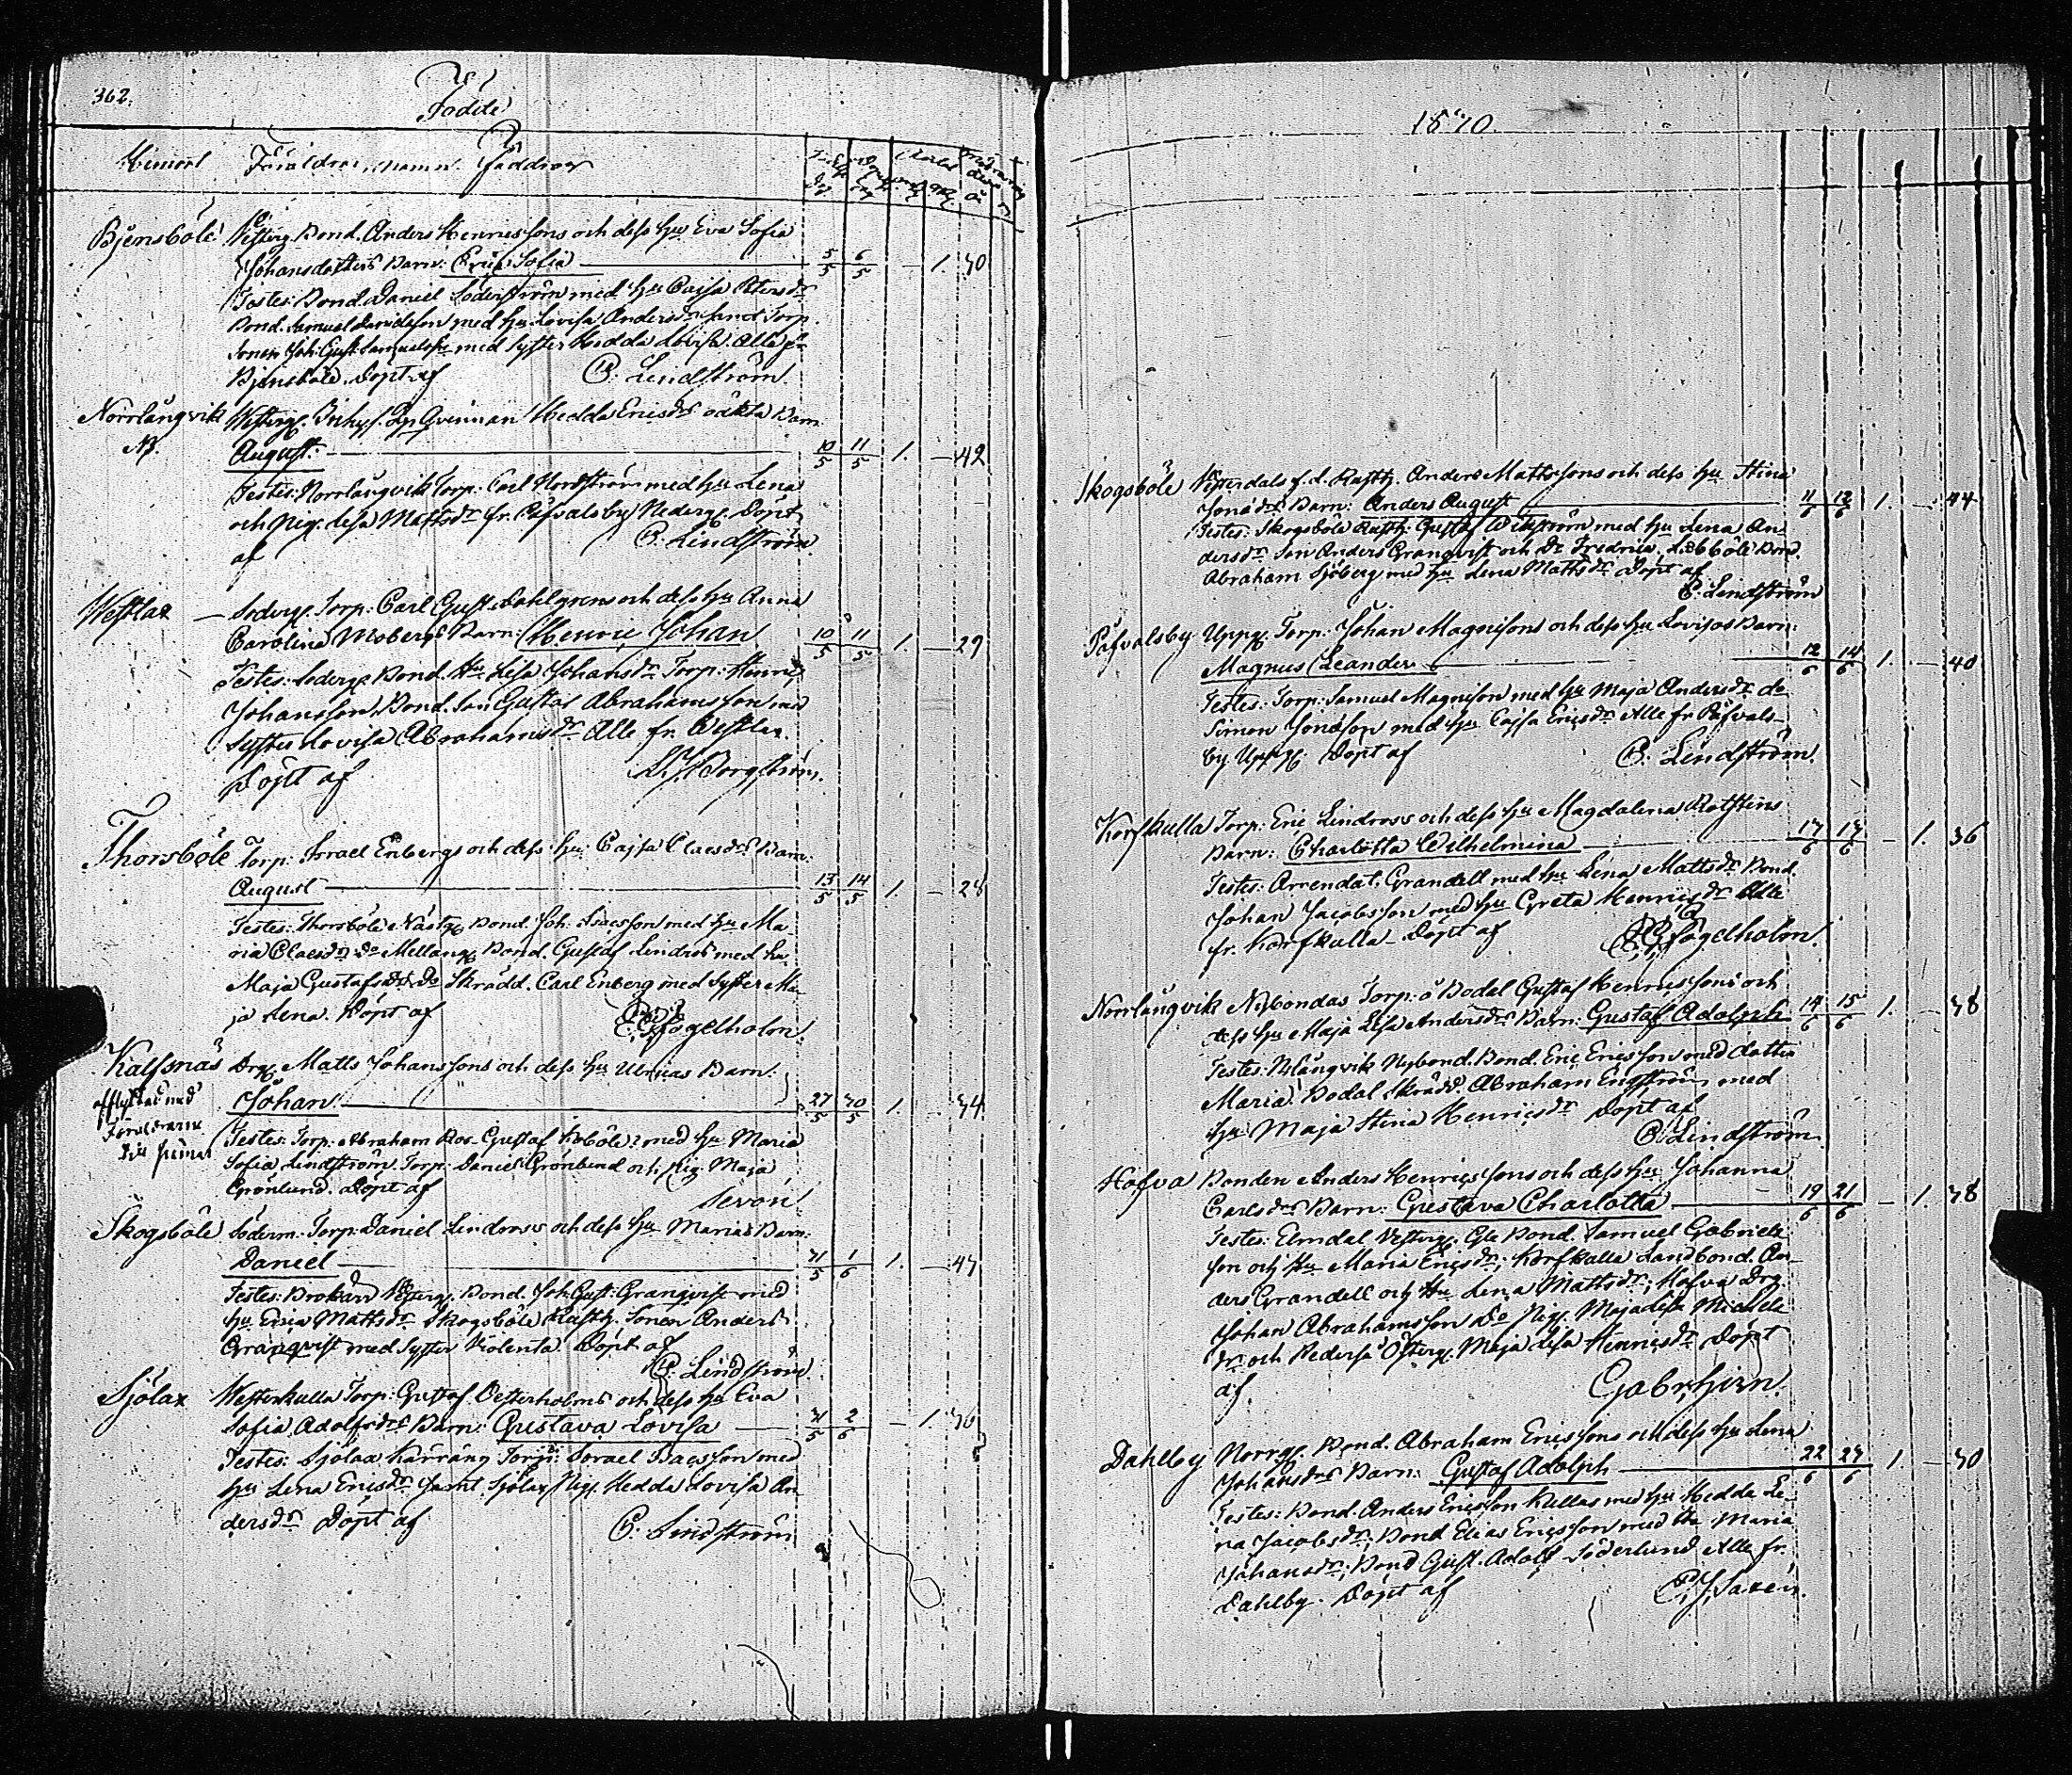 362.
Födde
Hemort Föräldrar, namn. Faddrar
Bjensböle Vesterg. Bond. Anders Henricssons och dess hu Eva Sofia
Johansdotters Barn: Erica Sofia 5/5 6/5 — 1. 30
Testes: Bond. Daniel Söderström med hu Cajsa Petersdr
Bond. Samuel Danielsson med hu Lovisa Andersdr samt Torp.
Sonen Joh. Gust. Samuelsson med Syster Hedda Lovisa. Alla fr
Bjensböle. Döpt af C. Lindström.
Norrlångvik Westerg. Inhys. Qvinnan Hedda Ericsdrs oäkta Barn
August. 10/5 11/5 1. — 42
Testes: Norrlångvik Torp. Carl Nordström med hu Lena
och Pig. Lisa Mattsdr fr. Påfvalsby Nederg. Döpt
af C. Lindström
Westlax — Söderg. Torp: Carl Gust. Dahlgrens och dess hu Anna
Carolina Mobergs Barn: Henric Johan 10/5 11/5 1. — 29
Testes: Söderg. Bond. Hu Lisa Johansdr Torp: Henric
Johansson, Bond. Son Gustaf Abrahamsson med
Syster Lovisa Abrahamsdr Alle fr. Westlax.
Döpt af Borgström.
Thorsböle Torp: Israel Enbergs och dess hu Cajsa Claesdrs Barn:
August 13/5 14/5 1. — 28
Testes: Thorsböle Nästg. Bond. Joh. Isacsson med hu Ma-
ria Claesdr Do Mellang. Bond. Gustaf Lindros med hu
Maja Gustafsdr Do Skrädd. Carl Enberg med Syster Ma-
ja Lena. Döpt af Fogelholm.
Kalfsnäs Drg. Matts Johanssons och dess hu Ulricas Barn:
Johan. 27/5 30/5 1. — 34
afflyttad med
Föräldrarne
Testes: Torp. Abraham Ros Gustaf med hu Maria
Sofia Lindström. Torp. Daniel Grönlund och Pig. Maja
Grönlund. Döpt af Sevón
Skogsböle Söderm. Torp. Daniel Lindroos och dess hu Marias Barn:
Daniel 31/5 1/6 1. —
Testes: Brokärr Vesterg. Bond. Joh. Gust. Granqvist med
hu Erica Mattsdr Skogsböle Rusth. Sonen Anders
Granqvist med Syster Violenta. Döpt af
C. Lindström
Sjölax Westerkulla Torp: Gustaf Oesterholms och dess hu Eva
Sofia Adolfsdrs Barn: Gustava Lovisa 31/5 2/6 — 1. 36
Testes: Sjölax Kärräng Torp: Israel Isacsson med
hu Lena Ericsdr samt Sjölax Pig. Hedda Lovisa An-
dersdr Döpt af C. Lindström
1870.
Skogsböle Vesterdals f.d. Rusth. Anders Mattssons och dess hu Stina
Jonædrs Barn: Anders August 11/6 12/6 1. — 44
Testes: Skogsböle Rusth. Gustaf Wikström med hu Lena An-
dersdr Son Anders Granqvist och Dr Fredrica. Labböle Bond.
Abraham Sjöberg med hu Lena Mattsdr Döpt af
C. Lindström
Påfvalsby Uppg. Torp: Johan Magnissons och dess hu Lovisas Barn:
Magnus Leander 12/6 14/6 1. — 40
Testes: Torp: Samuel Magnisson med hu Maja Andersdr do
Simon Jonasson med hu Cajsa Ericsdr Alle fr. Påfvals-
by Uppg. Döpt af C. Lindström.
Korfkulla Torp: Eric Lindroos och dess hu Magdalena Rotstins
Barn: Charlotta Wilhelmina 17/6 17/6 — 1. 36
Testes: Arrendat. Grandell med hu Lena Mattsdr Bond.
Johan Jacobsson med hu Greta Henricsdr Alle
fr. Korfkulla. Döpt af Fogelholm.
Norrlångvik Nybondas Torp: å Bodal Gustaf Henricssons och
dess hu Maja Lisa Andersdrs Barn: Gustaf Adolph 14/6 15/6 1. — 38
Testes: Nlångvik Nybond. Bond. Eric Ericsson med dotter
Maria. Bodal Skrädd. Abraham Engström med
hu Maja Stina Henricsdr Döpt af
C. Lindström
Hafva Bonden Anders Henricssons och dess hu Johanna
Carlsdrs Barn: Gustava Charlotta 19/6 21/6 — 1. 38
Testes: Elmdal Vesterg. Bond. Samuel Gabriels-
son och Hu Maria Ericsdr; Korfkulla Landbond. An-
ders Grandell och Hu Lena Mattsdr; Hafva Drg.
Johan Abrahamsson Do Pig. Maja Lisa Michels-
dr och Pederså Österg. Maja Lisa Henricsdr Döpt
af
Dahlby Norrg. Bond. Abraham Ericssons och dess hu Lena
Johansdrs Barn: Gustaf Adolph 22/6 27/6 1. — 30
Testes: Bond. Anders Ericsson Kullas med hu Hedda Le-
na Jacobsdr; Bond Elias Ericsson med Hu Maria
Johansdr; Bond Gust. Adolf Söderlund Alle fr.
Dahlby. Döpt af Saxén